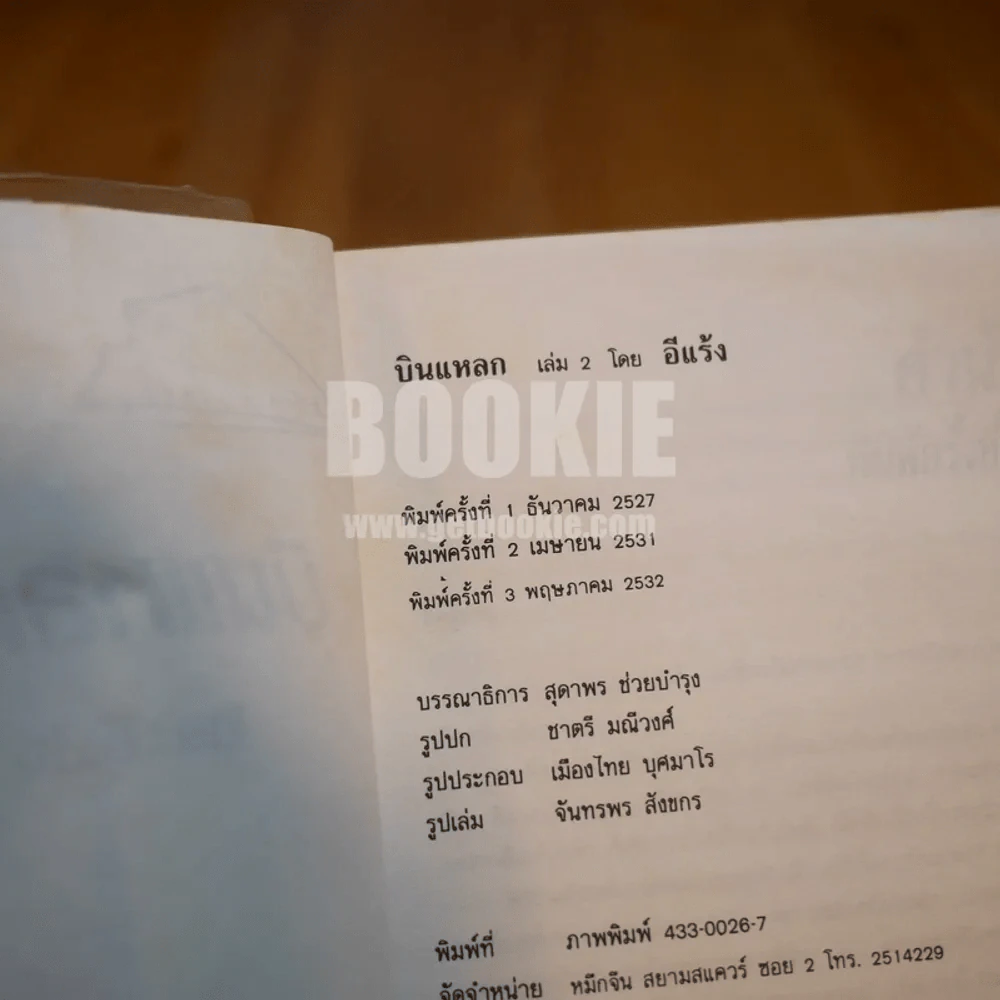 บินแหลก เล่ม 2 โดย อีแร้ง
BOOKIE
พิมพ์ครั้งที่ 1 ธันวาคม 2527
www.getbookie.com
พิมพ์ครั้งที่ 2 เมษายน 2531
พิมพ์ครั้งที่ 3 พฤษภาคม 2532
บรรณาธิการ สุดาพร ช่วยบำรุง
รูปปก ชาตรี มณีวงศ์
รูปประกอบ เมืองไทย บุศมาโร
รูปเล่ม จันทรพร สังขกร
พิมพ์ที่ ภาพพิมพ์ 433-0026-7
จัดจำหน่าย หมึกจีน สยามสแควร์ ซอย 2 โทร. 2514229